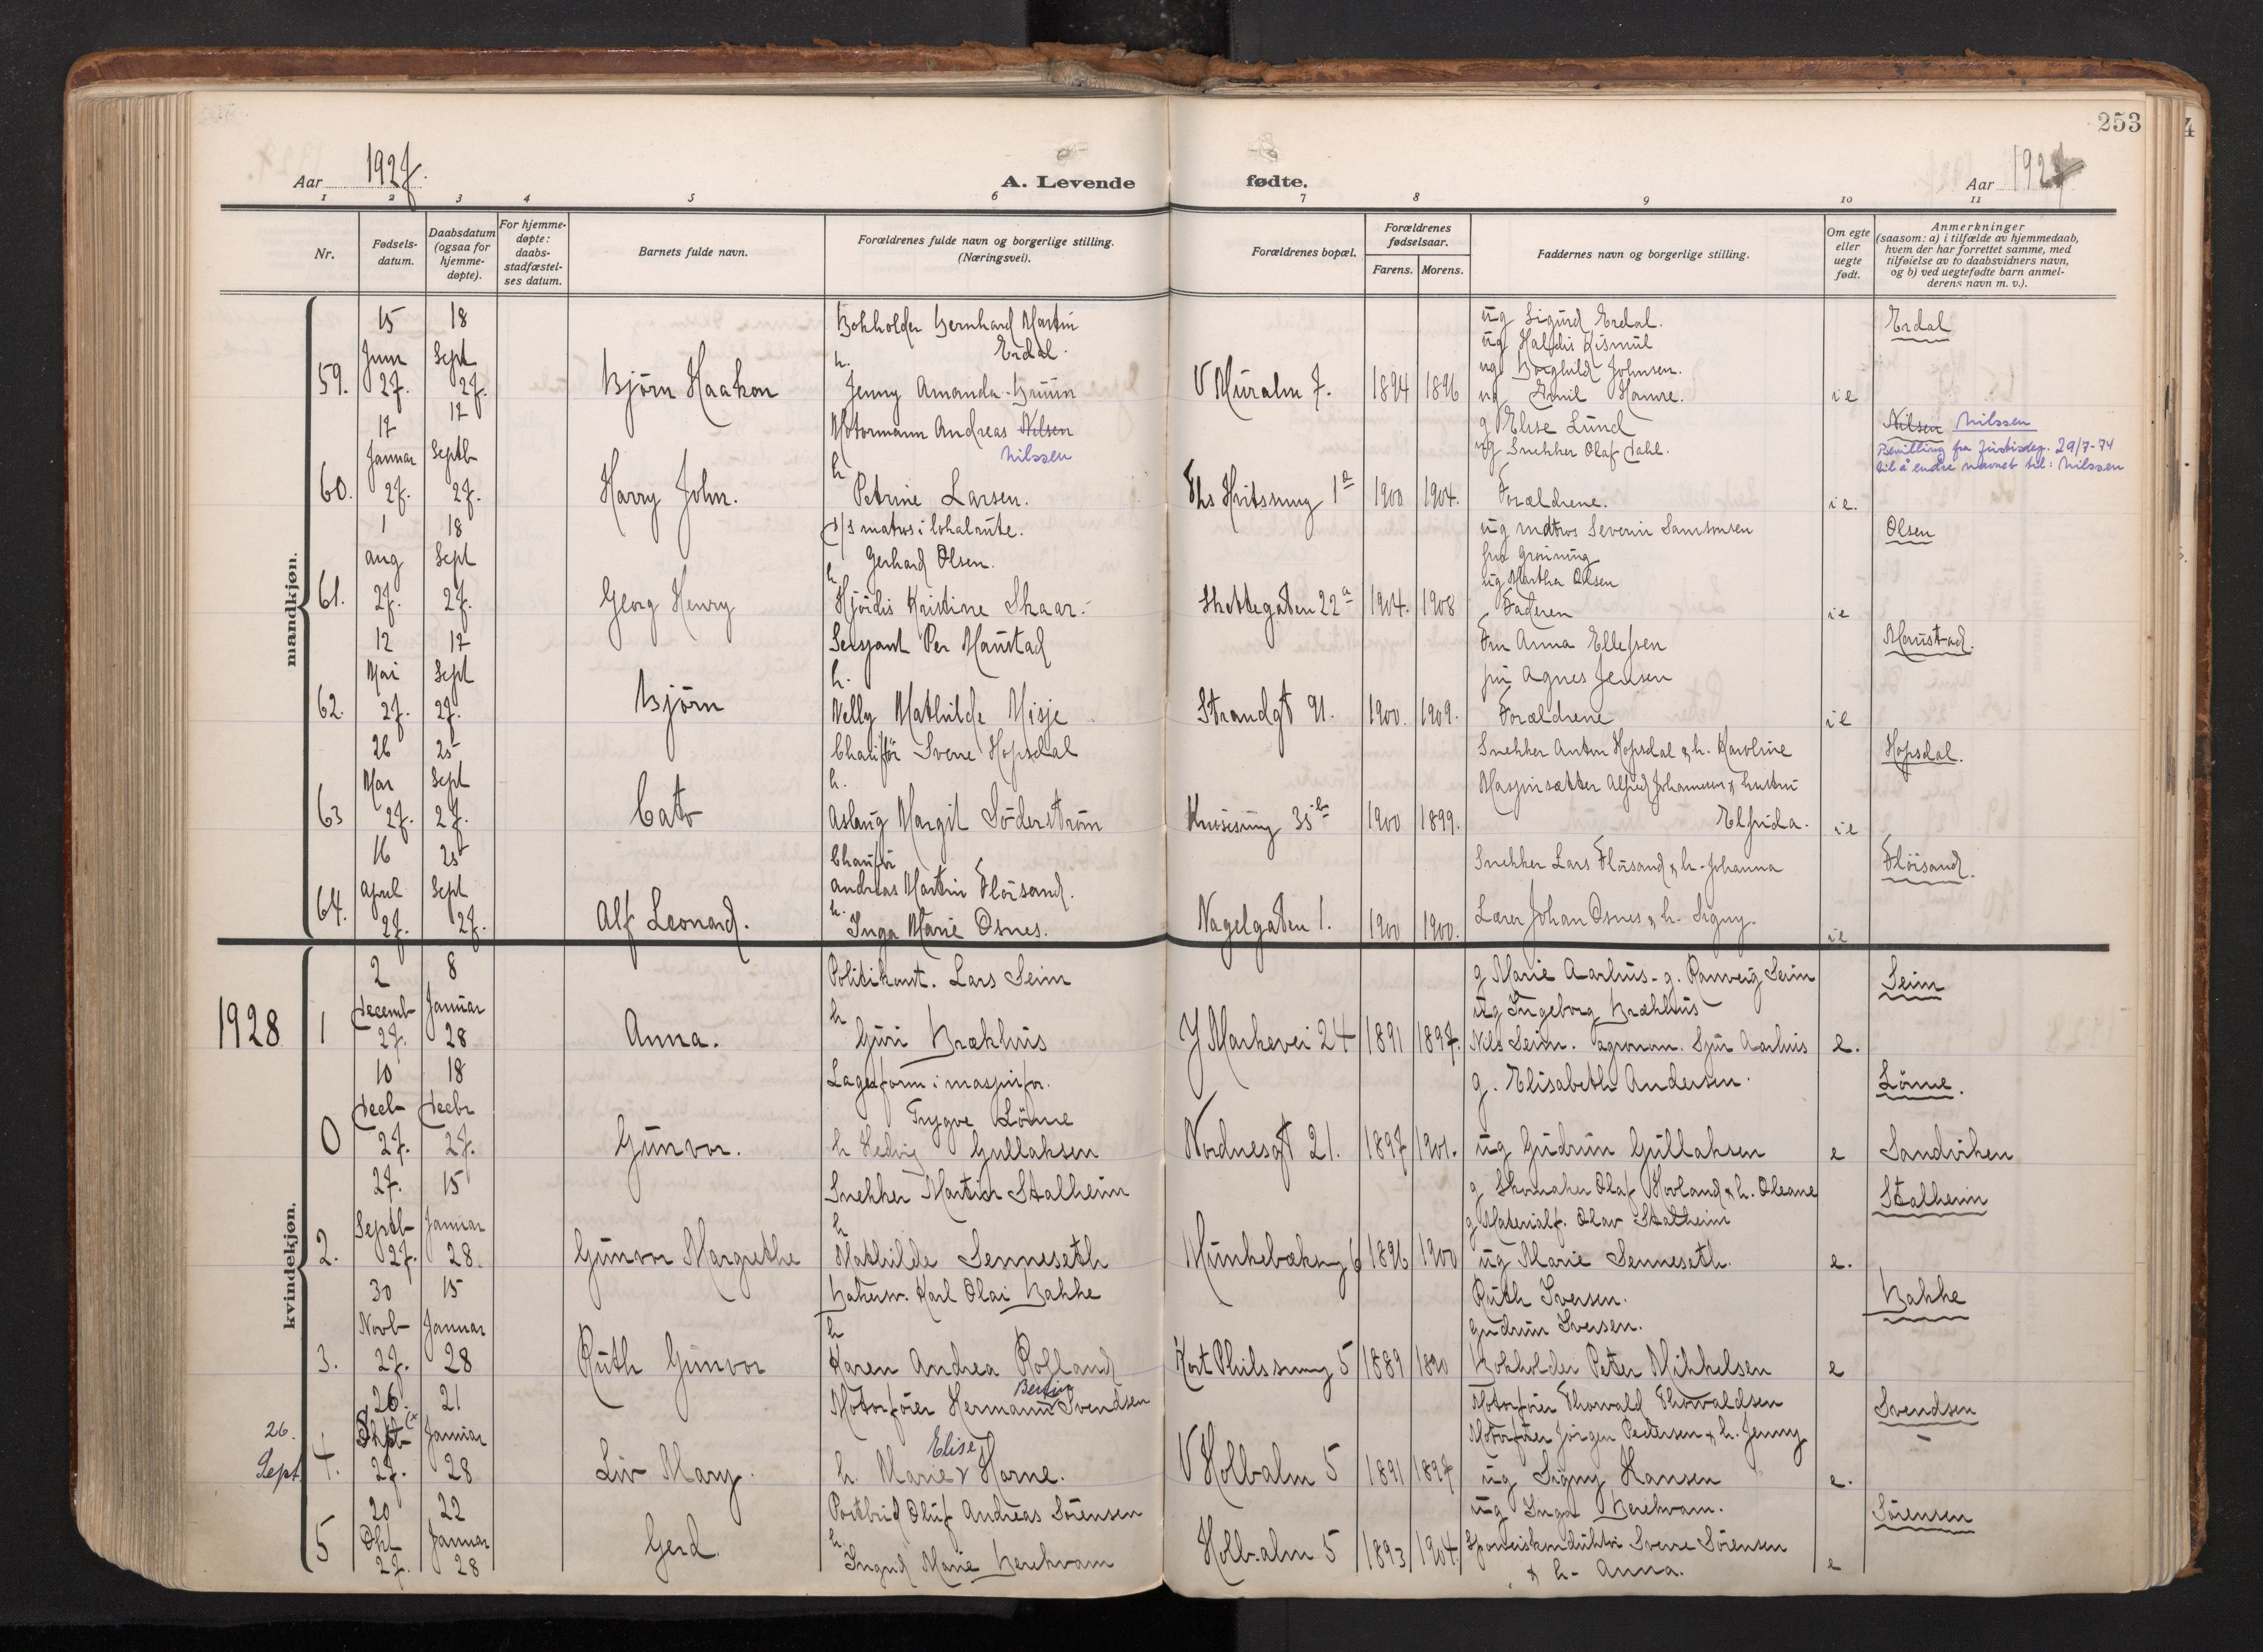 253
Aar 1927. A. Levende fødte. Aar 1927
1 2 3 4 5 6 7 8 9 10 11
Nr.
Fødsels-
datum.
Daabsdatum
(ogsaa for
hjemme-
døpte).
For hjemme-
døpte:
daabs-
stadfæstel-
ses datum.
Barnets fulde navn.
Forældrenes fulde navn og borgerlige stilling.
(Næringsvei).
Forældrenes bopæl.
Forældrenes
fødselsaar.
Farens. Morens.
Faddernes navn og borgerlige stilling.
Om egte
eller
uegte
født.
Anmerkninger
(saasom: a) i tilfælde av hjemmedaab,
hvem der har forrettet samme, med
tilføielse av to daabsvidners navn,
og b) ved uegtefødte barn anmel-
derens navn m. v.).
mandkjøn.
59.
15
Juni
27.
18
Sept
27.
Bjørn Haakon
Bokholder Bernhard Martin
Erdal.
h.
Jenny Amanda Bruun
V Muralm 7.
1894 1896
ug Sigurd Erdal.
ug Halfdis Kismul
ug Borghild Johnsen.
ug Emil Hamre.
ie
Erdal
60.
17
Januar
27.
17
Septb
27.
Harry John.
Motormann Andreas Nilsen
Nilssen
h
Petrine Larsen.
1a
1900 1904.
g Elise Lund
ug Snekker Olaf Dahl.
Forældrene.
ie.
Nilsen Nilssen
Bevilling fra Justisdep. 29/7-74
til å endre navnet til: Nilssen
61.
1
aug
27.
18
Sept
27.
Georg Henry
D/S matros i lokalrute.
Gerhard Olsen.
h
Hjørdis Kristine Skaar.
Skottegaten 22a
1904. 1908
ug matros Severin Samsonsen
fru Grønning
ug Martha Olsen
Faderen
ie
Olsen
62.
12
Mai
27.
17
Sept
27.
Bjørn
Sersjant Per Maustad
h.
Nelly Mathilde Misje
Strandgt 91.
1900. 1909.
Fru Anna Ellefsen
fru Agnes Jensen
Forældrene
ie
Maustad.
63
26
Mar
27.
25
Sept
27.
Cato
Chauffør Sverre Hopsdal
h.
Aslaug Margit Söderstrøm
35b
1900 1899.
Snekker Anton Hopsdal & h. Karoline
Maspinsætter Alfred Johannesen & hustru
Elfrida.
ie
Hopsdal.
64.
16
April
27.
25
Sept
27.
Alf Leonard.
Chauffør
Andreas Martin Fløisand.
h.
Inga Marie Osnes.
Nagelgaten 1.
1900 1900.
Snekker Lars Fløisand & h. Johanna
Lærer Johan Osnes & h. Signy.
ie
Fløisand.
kvindekjøn.
1928
1
2
Decemb
27.
8
Januar
28
Anna.
Politikonst. Lars Seim
h
Guri Brækhus
Y Markevei 24
1891 1897.
g Marie Aarhus. g. Ranveig Seim
ug Ingeborg Brækhus
Nils Seim. agronom. Sjur Aarhus
e.
Seim
0
10
Decb
27.
18
Decbr
27.
Gunvor.
Lagerform i maspinfor.
Trygve Lönne
h Hedvig Gullaksen
Nordnesgt 21.
1897 1901.
g. Elisabeth Andersen.
ug Gudrun Gullaksen
e
Lönne.
Sandviken
2.
27.
Septb
27.
15
Januar
28.
Gunvor Margrethe
Snekker Martin Stalheim
h
Mathilde Senneseth
Munkebæksmg 6
1896 1900
g Skomaker Olaf Hovland & h. Oleane
g Materialf. Olav Stalheim
ug Marie Senneseth.
e.
Stalheim
3.
30
Novb
27.
15
Januar
28
Ruth Gunvor
Bakersv. Karl Olai Bakke
h
Karen Andrea Rolland
Kort Philssmug 5
1889 1890
Ruth Iversen.
Gudrun Iversen.
Bokholder Peter Mikkelsen
e
Bakke
26.
Sept
4.
26.
27.
21
Januar
28
Liv Mary.
Motorfører Hermann Svendsen
h. Marie Elise Horne.
V Holbalm 5
1891 1897
Motorfører Thorvald Thorvaldsen
Motorfører Jørgen Pedersen & h. Jenny
ug Signy Hansen
e.
Svendsen
5
20
Okt
27.
22
Januar
28
Gerd
Postbud Oluf Andreas Sörensen
h
Ingrid Marie Berekvam
Holb.alm 5
1893 1904.
ug Inga Berekvam.
Sporveiskonduktør Sverre Sörensen
& h. Anna.
e
Sörensen